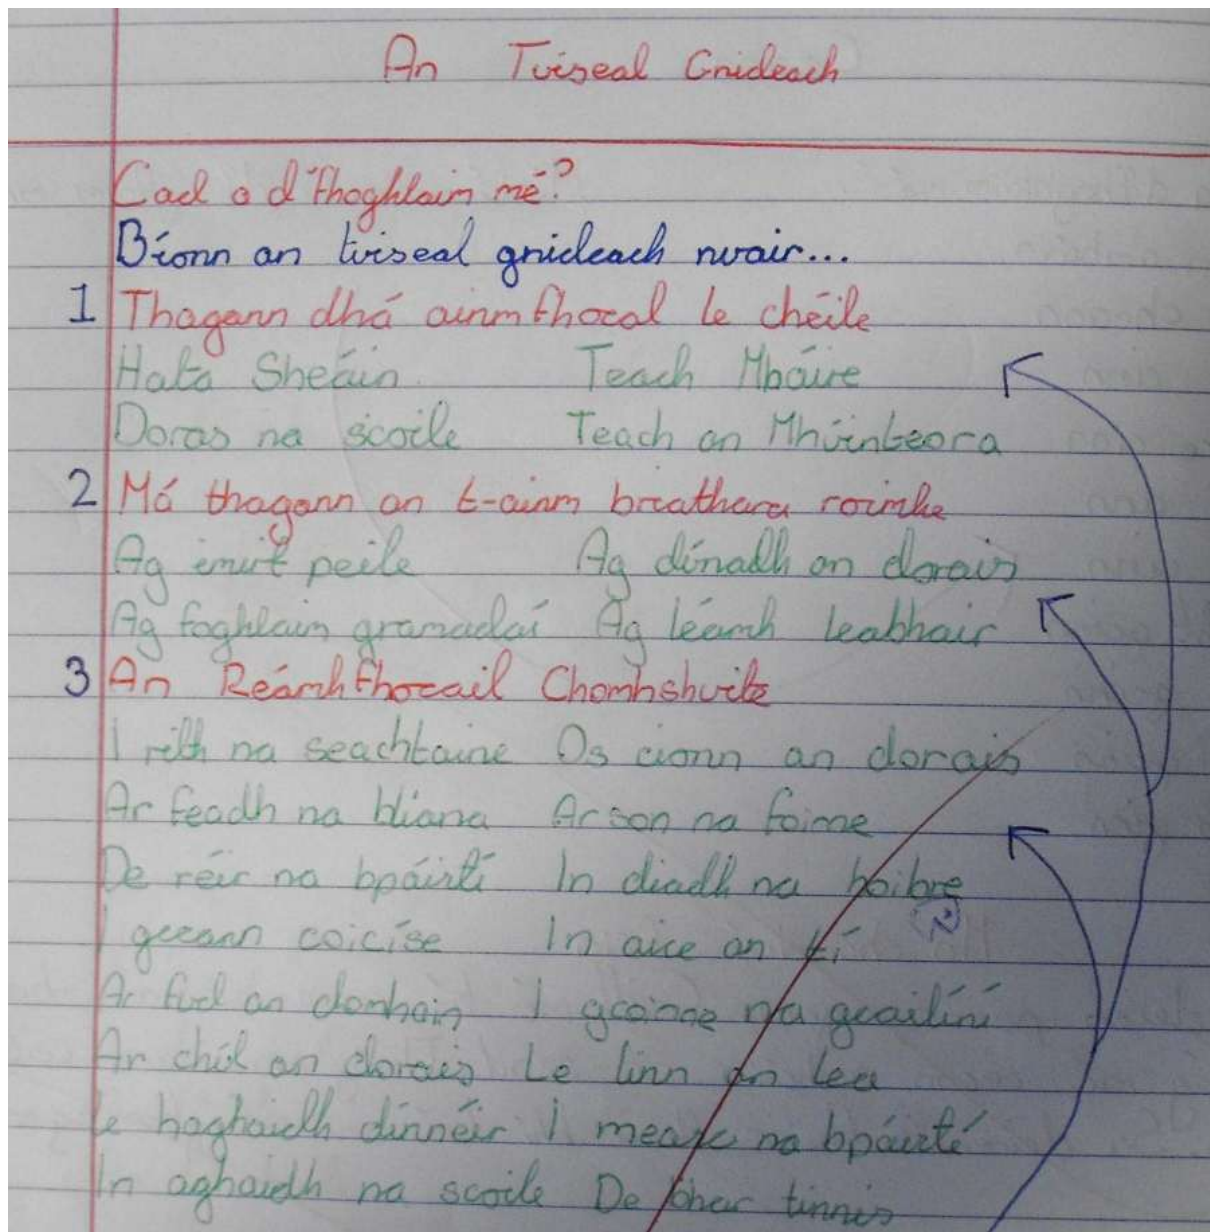 An Tuiseal Gnideach
Cad a d'fhoghlaim mé?
Bíonn an tuiseal gnideach nuair...
1 Thagann dhá ainmfhocal le chéile
Hata Sheáin Teach Mháire
Doras na scoile Teach an Mhúinteora
2 Má thagann an t-ainm briathara roimhe
Ag imirt peile Ag dúnadh an dorais
Ag foghlaim gramadaí Ag léamh leabhair
3 An Réamhfhocail Chomhshuite
I rith na seachtaine Os cionn an dorais
Ar feadh na bliana Ar son na foirne
De réir na bpáistí In diadh na hoibre
I gceann coicíse In aice an tí
Ar fud an domhain I gcoinne na gcailíní
Ar chúl an dorais Le linn an lea
Le haghaidh dinnéir I measc na bpáistí
In aghaidh na scoile De bharr tinnis